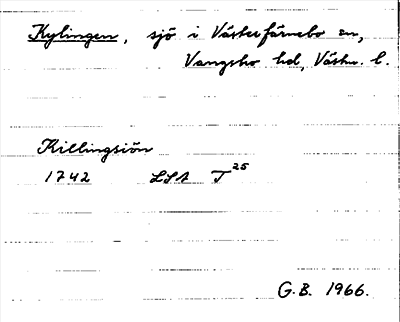 Kylingen, sjö i Västerfärnebo sn,
Vangsbo hd, Västm. l.
Killingsiön
1742 LSA T 25
G.B. 1966.